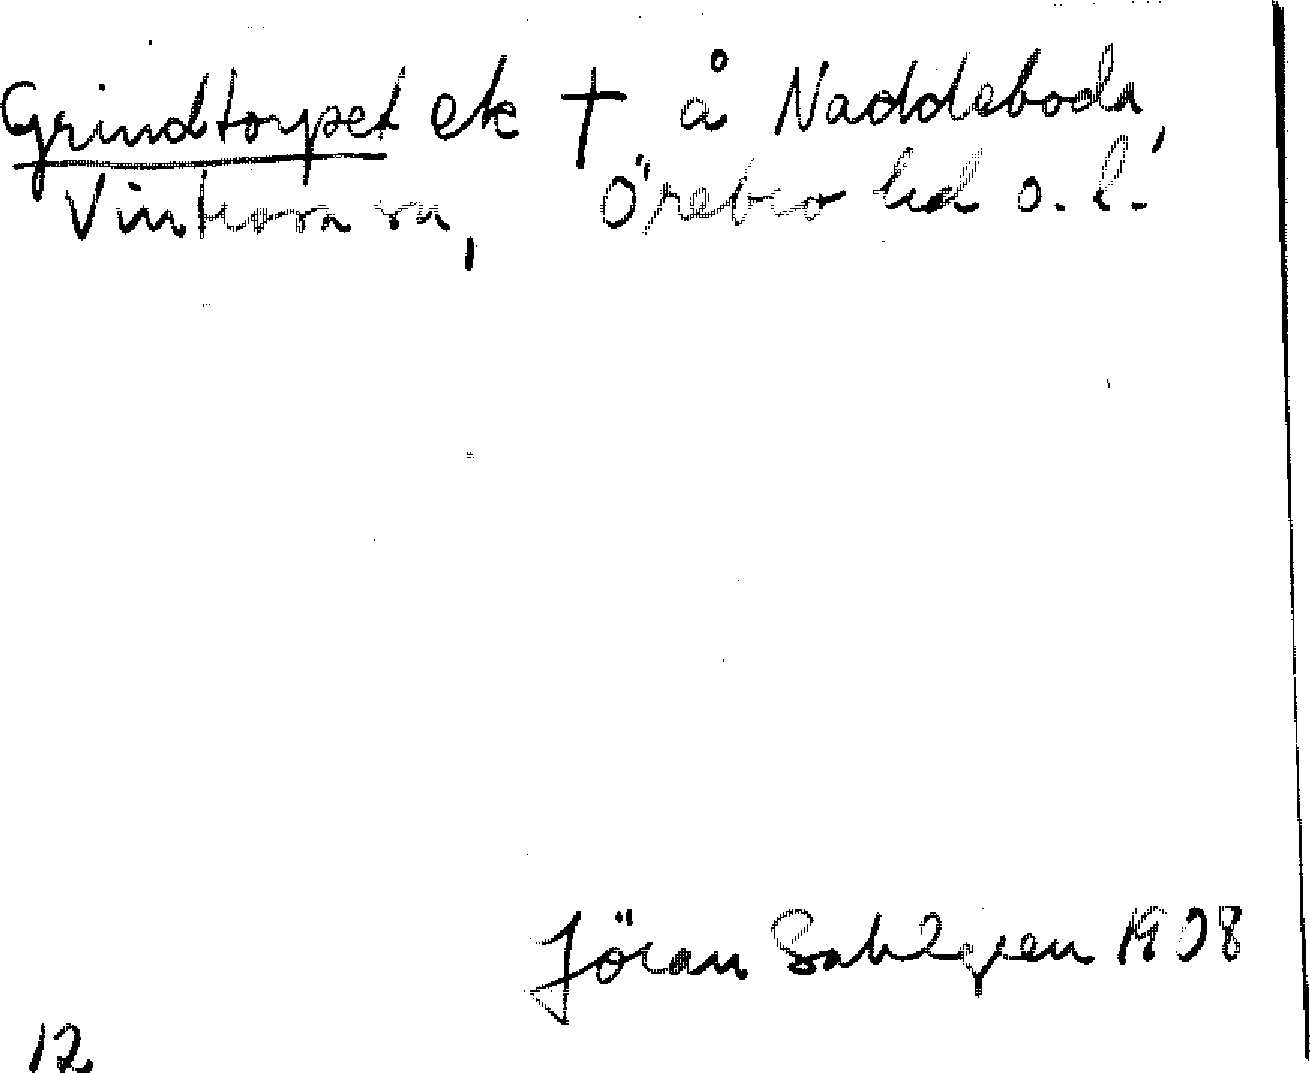 Grindtorpet ek † å Naddeboda,
Vintrosa sn, Örebro hd o. l.
Jöran Sahlgren 1908
12